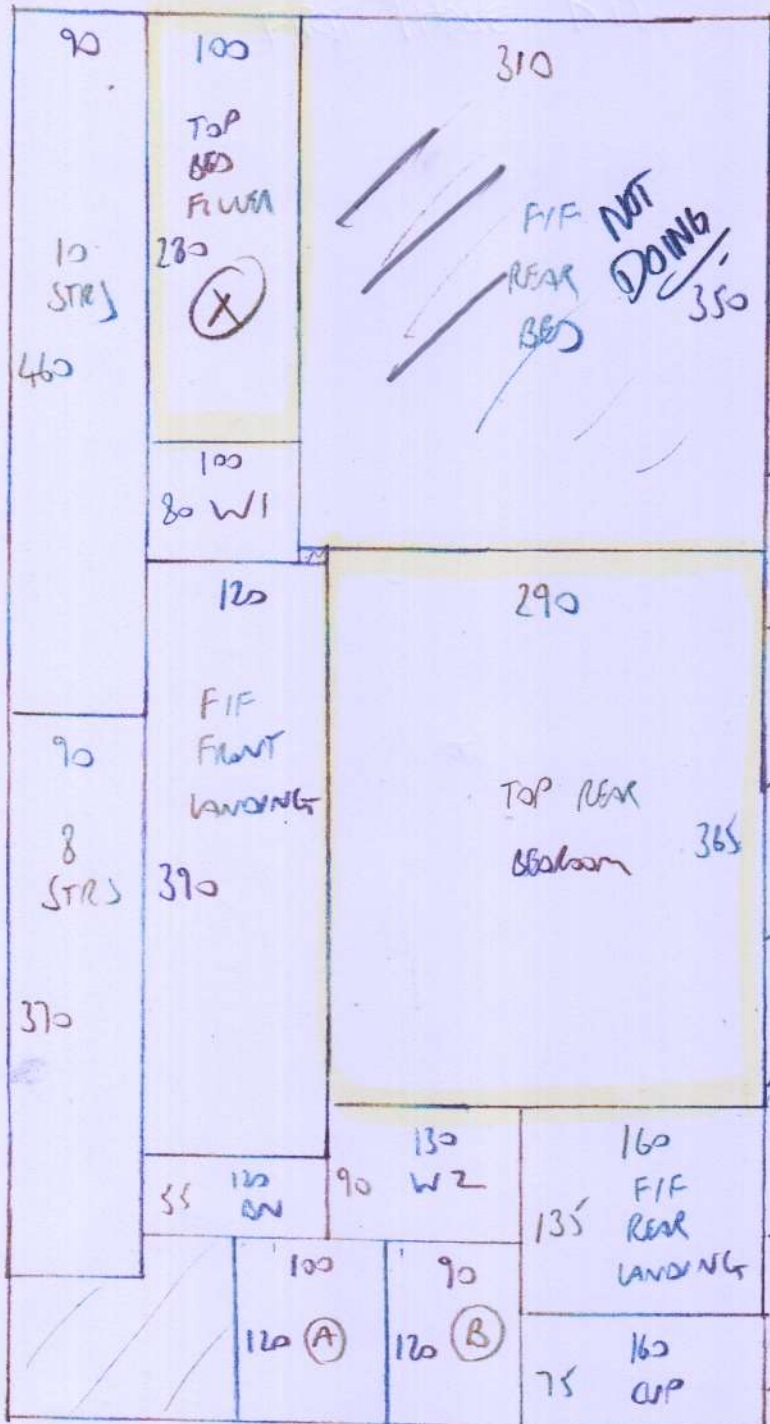 90
10
STRS
460
100
TOP
BED
FILLER
280
X
310
F/F
REAR
BED
NOT
DOING
350
100
80 W1
120
F/F
FRONT
LANDING
390
290
TOP REAR
BEDROOM
365
90
8
STRS
370
55
120
130
90 W2
160
F/F
135
REAR
LANDING
100
120 A
90
120 B
160
75
CUP